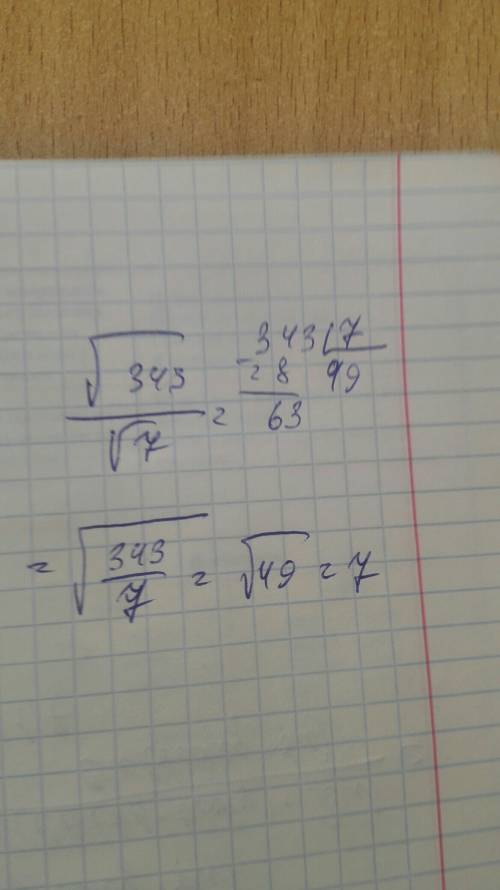 √343 / √7 =
343 | 7
- 28 49
63
= √(343 / 7) = √49 = 7